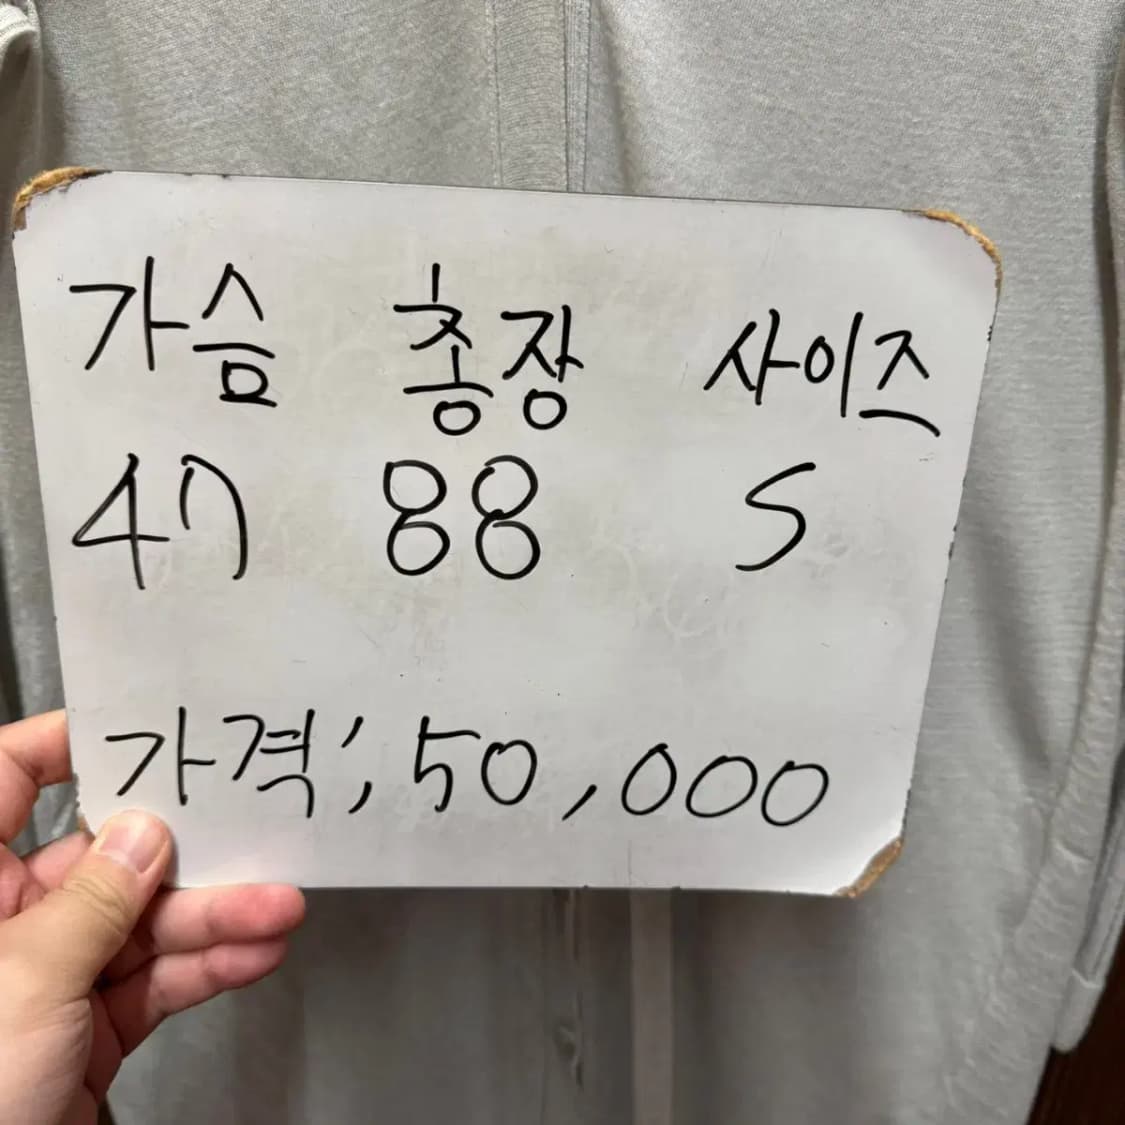 가슴 총장 사이즈
47 88 S
가격; 50,000